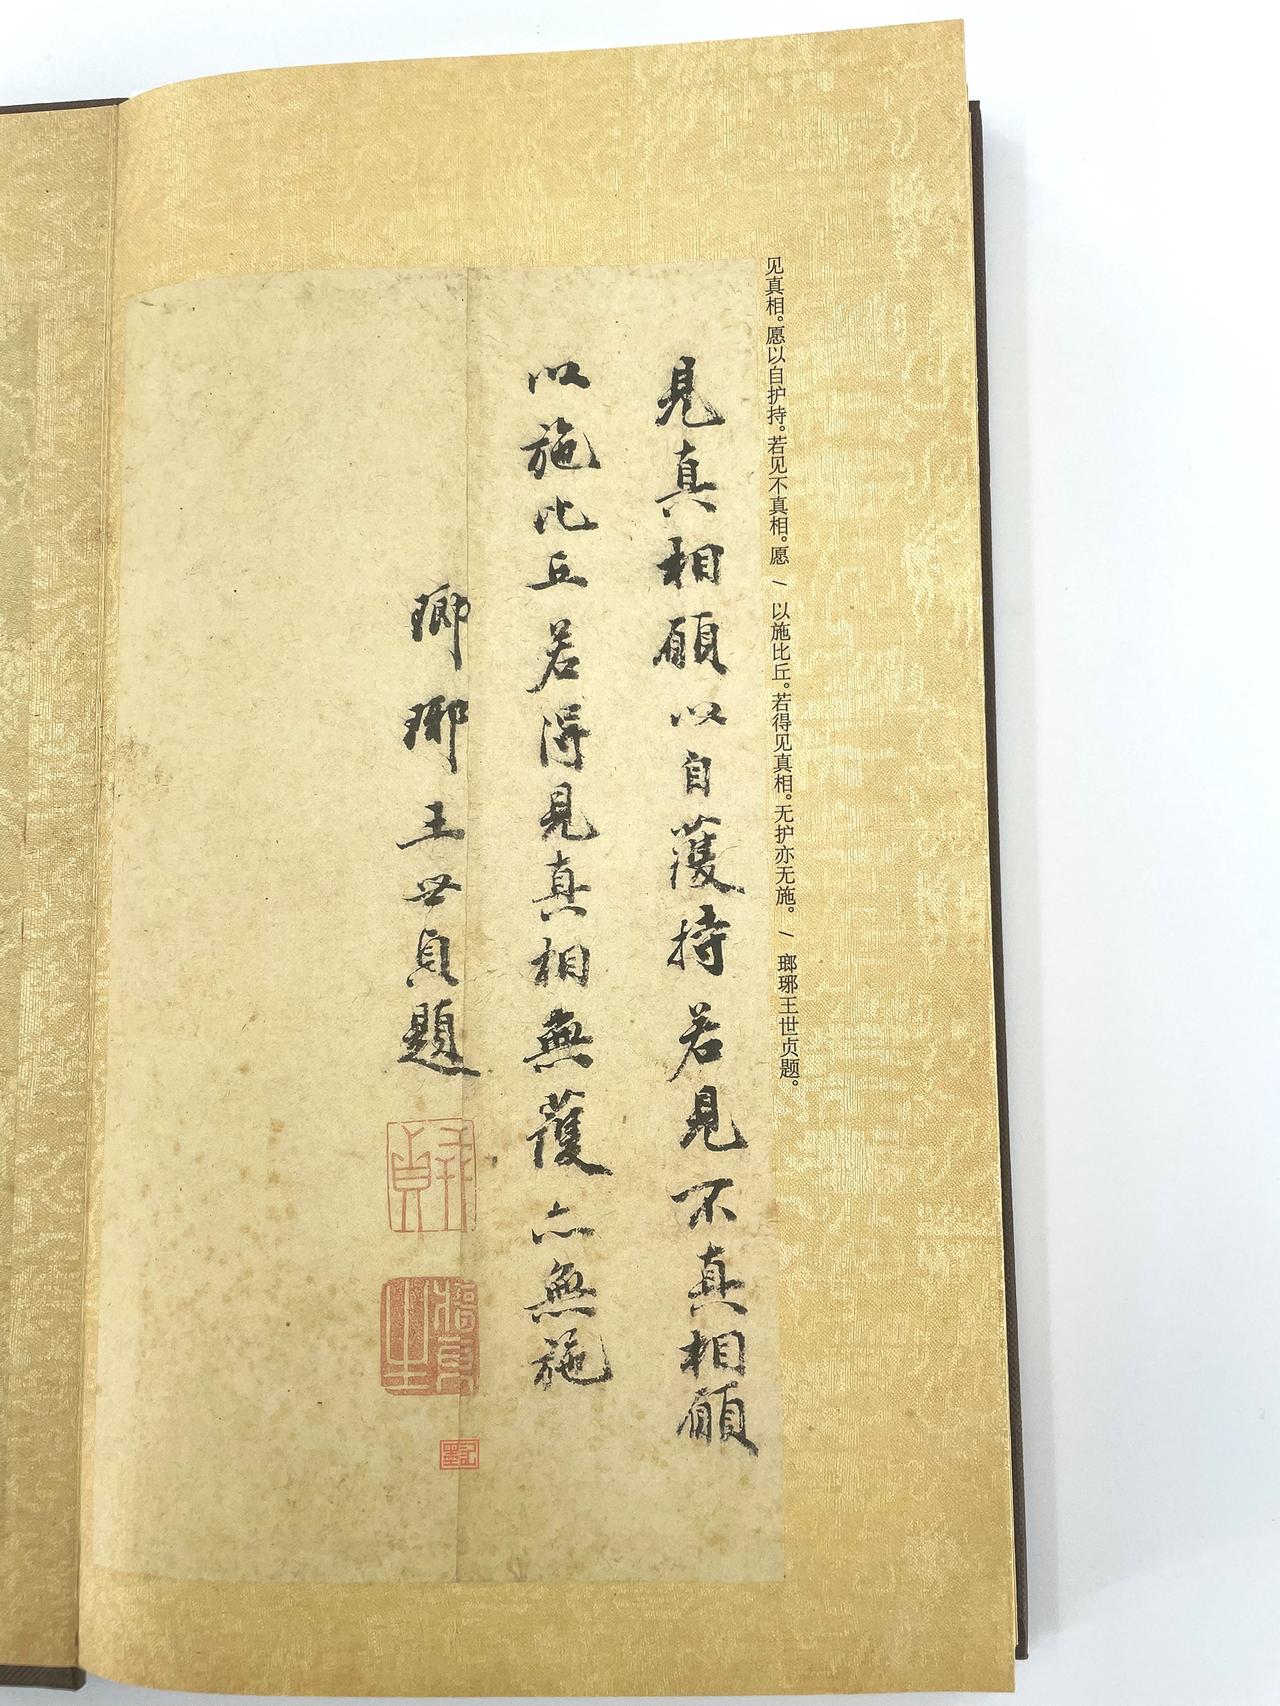 见真相。愿以自护持。若见不真相。愿 / 以施比丘。若得见真相。无护亦无施。 / 瑯琊王世贞题。
見真相願以自蒦持若見不真相願
以施比丘若得見真相無蒦亦無施
瑯琊王世貞題